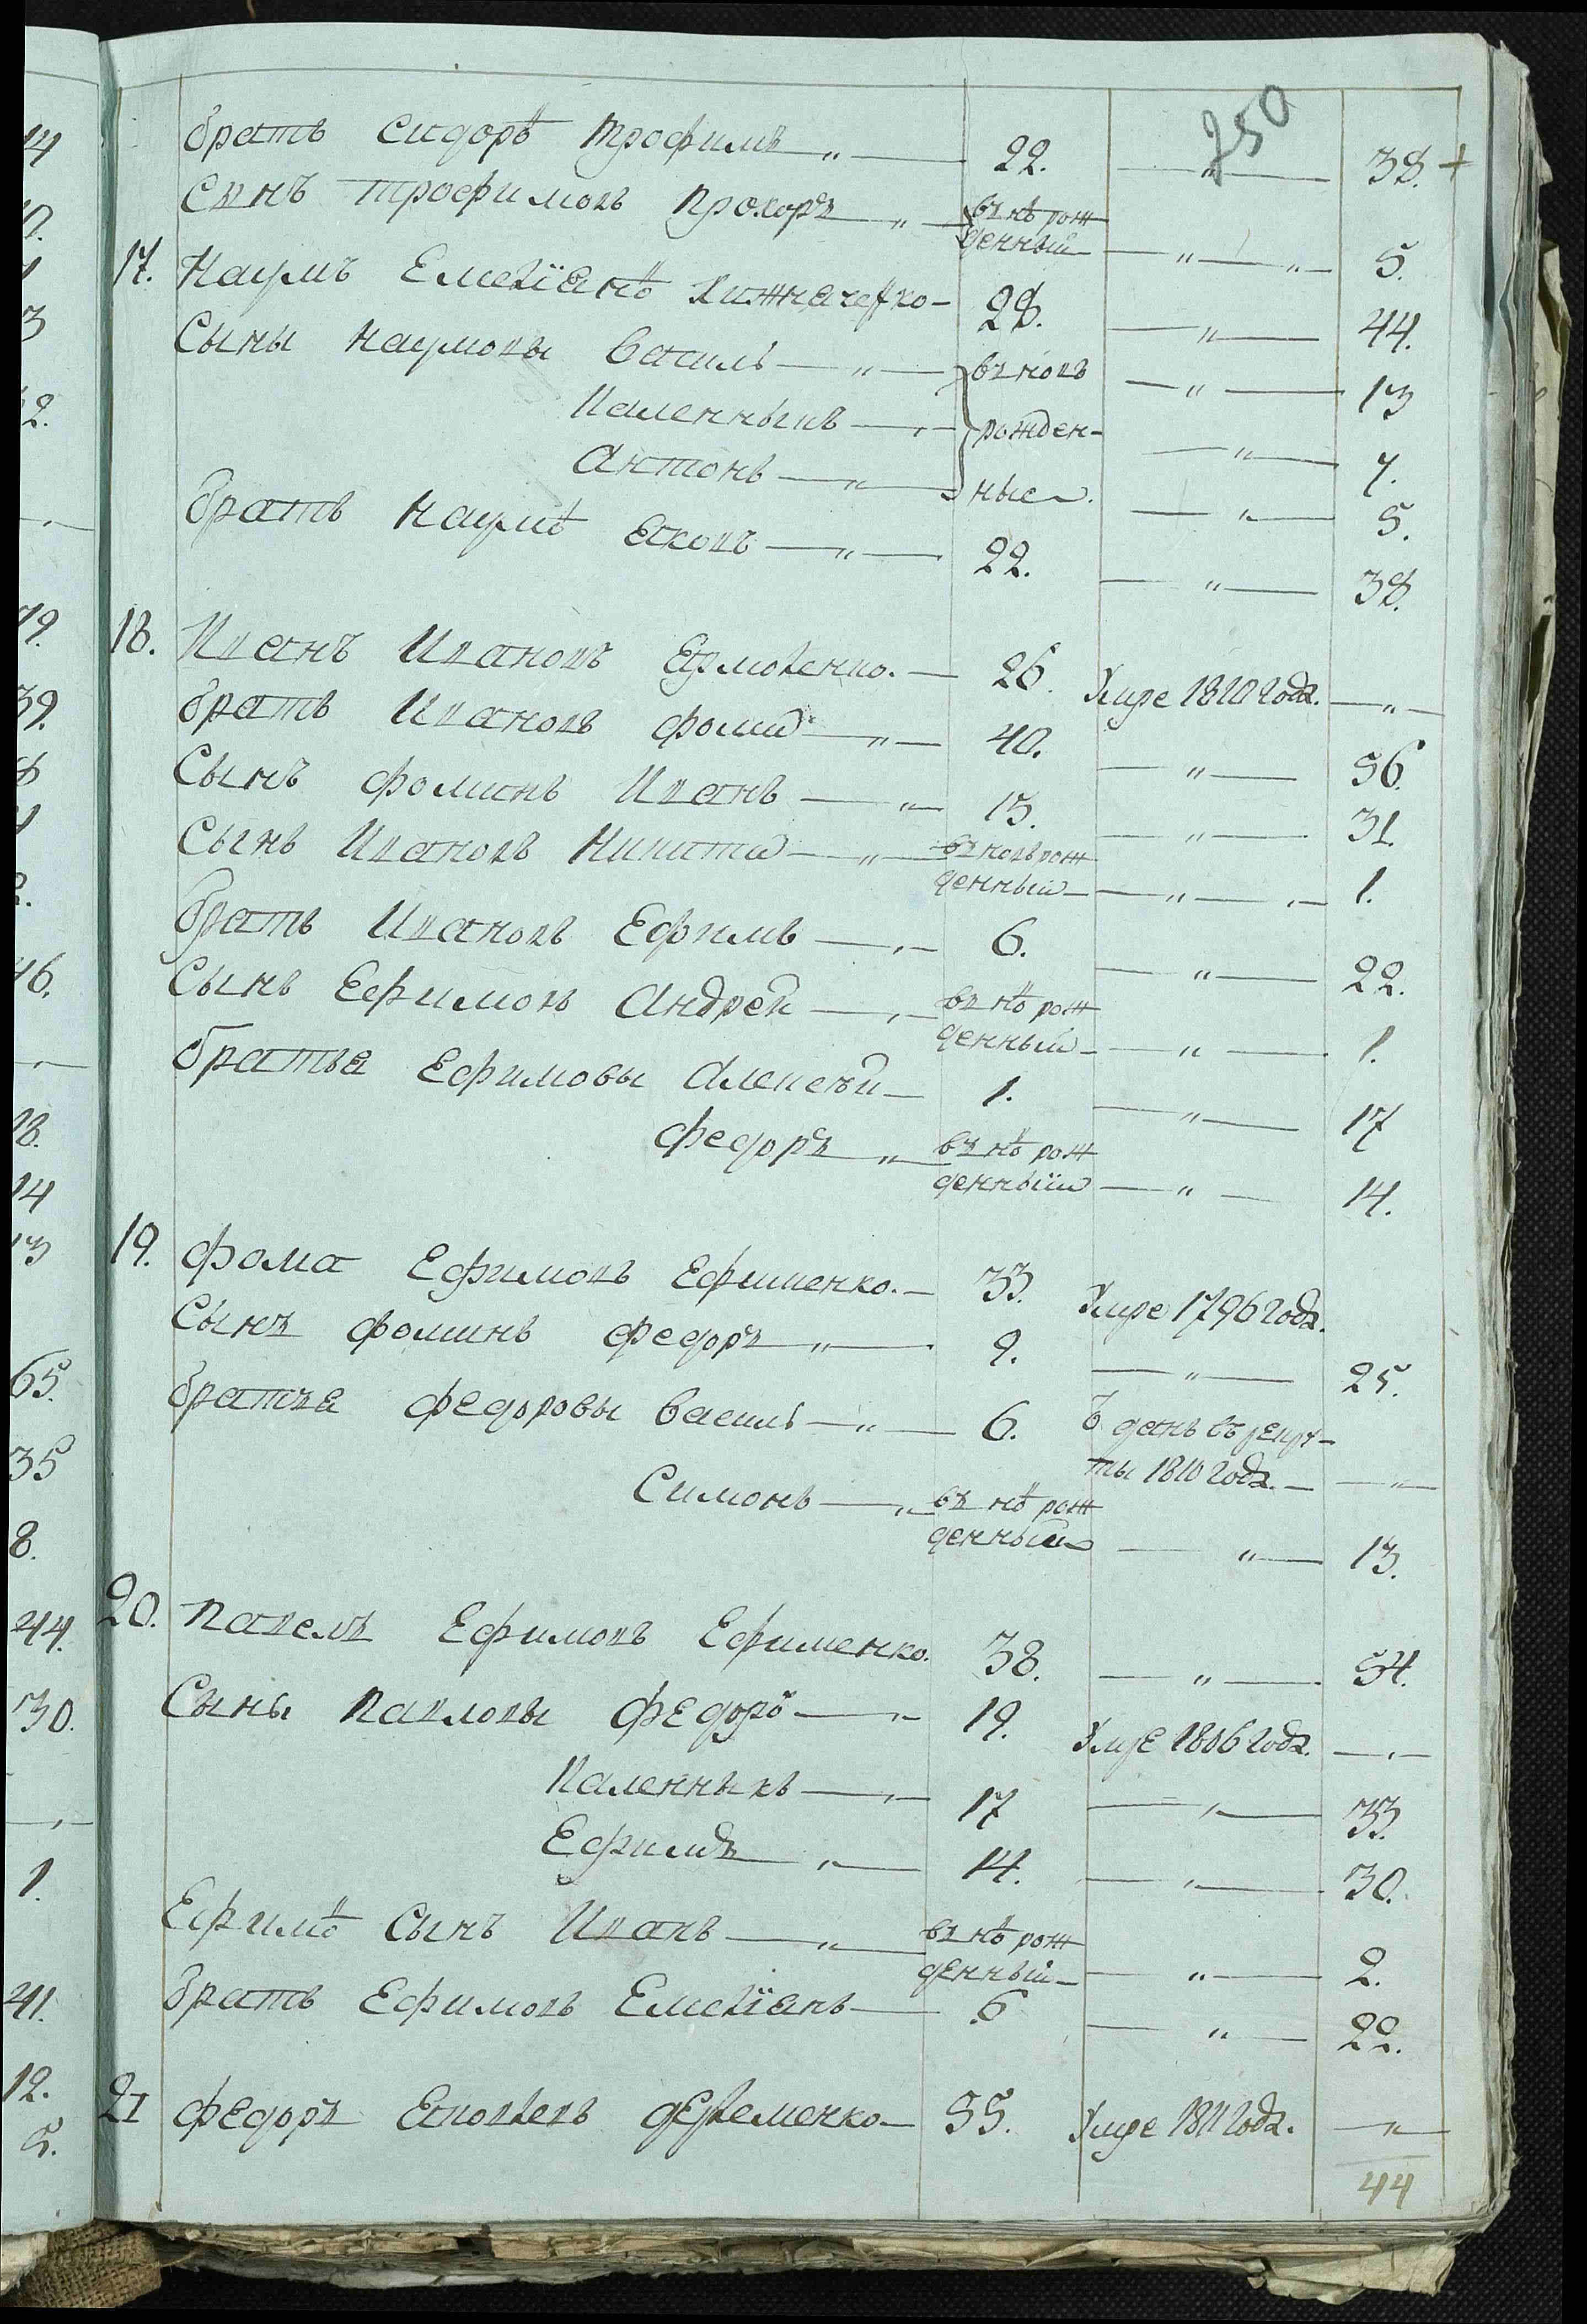 250
братъ Сидоръ Трофимъ „ — 22. — „ — 38. +
Сынъ Трофимовъ Прохоръ „ — въ нѡ рож
денный — „ — „ — 5.
17. Наумъ Емеліанѡ — 28. — „ — 44.
Сыны Наумовы Василь — „ — вновь — „ — 13
Каленныкъ — „ — рожден- — „ — 7.
Антонъ — „ — ные. — „ — 5.
братъ Наумѡ Яковъ — „ — 22. — „ — 38.
18. Иванъ Ивановъ Ярмоленко. — 26. Умре 1810 года. — „ —
братъ Ивановъ Фома — „ — 40. — „ — 56.
Сынъ Фоминъ Иванъ — „ — 15. — „ — 31.
Сынъ Ивановъ Никита — „ — вновь рож
денный — „ — „ — 1.
братъ Ивановъ Ефимъ — „ — 6. — „ — 22.
Сынъ Ефимовъ Андрей — „ — въ нѡ рож
денный — „ — 1.
братья Ефимовы Алексѣй — 1. — „ — 17
Федоръ „ — въ нѡ рож
денный — „ — 14.
19. Фома Ефимовъ Ефименко. — 33. Умре 1796 года.
Сынъ Фоминъ Федоръ „ — 9. — „ — 25.
братья Федоровы Василь — „ — 6. Ѿданъ въ рекру-
ты 1810 года. — „ —
Симонъ — „ — въ нѡ рож
денный — „ — 13.
20. Павелъ Ефимовъ Ефименко. 38. — „ — 54.
Сыны Павловы Федоръ — „ — 19. Умре 1806 года. — „ —
Каленныкъ — „ — 17 — „ — 33.
Ефимъ — „ — 14. — „ — 30.
Ефимѡ Сынъ Иванъ — „ — въ нѡ рож
денный — „ — 2.
братъ Ефимовъ Емеліанъ — 6 — „ — 22.
21 Федоръ Яковлевъ — 55. Умре 1811 года. — „ —
44